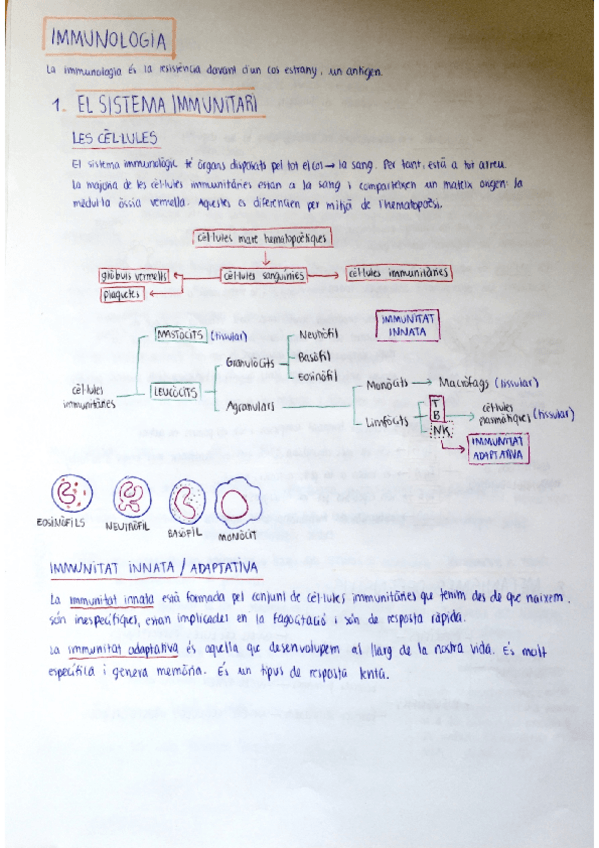 IMMUNOLOGIA
La immunologia és la resistència davant d'un cos estrany, un antigen.
1. EL SISTEMA IMMUNITARI
LES CÈL·LULES
El sistema immunològic té òrgans disposats pel tot el cos → la sang. Per tant, està a tot arreu.
La majoria de les cèl·lules immunitàries estan a la sang i comparteixen un mateix origen: la
mèdul·la òssia vermella. Aquestes es diferencien per mitjà de l'hematopoèsi.
cèl·lules mare hematopoètiques
glòbuls vermells
cèl·lules sanguínies
cèl·lules immunitàries
plaquetes
IMMUNITAT
INNATA
MASTÒCITS (tissular)
Neutròfil
Granulòcits
Basòfil
Eosinòfil
cèl·lules
immunitàries
LEUCÒCITS
Agranulars
Monòcits → Macròfags (tissular)
Limfòcits
T
B
NK
cèl·lules
plasmàtiques (tissular)
IMMUNITAT
ADAPTATIVA
EOSINÒFILS
NEUTRÒFIL
BASÒFIL
MONÒCIT
IMMUNITAT INNATA / ADAPTATIVA
La immunitat innata està formada pel conjunt de cèl·lules immunitàries que tenim des de que naixem.
són inespecífiques, estan implicades en la fagocitació i són de resposta ràpida.
La immunitat adaptativa és aquella que desenvolupem al llarg de la nostra vida. És molt
específica i genera memòria. És un tipus de resposta lenta.